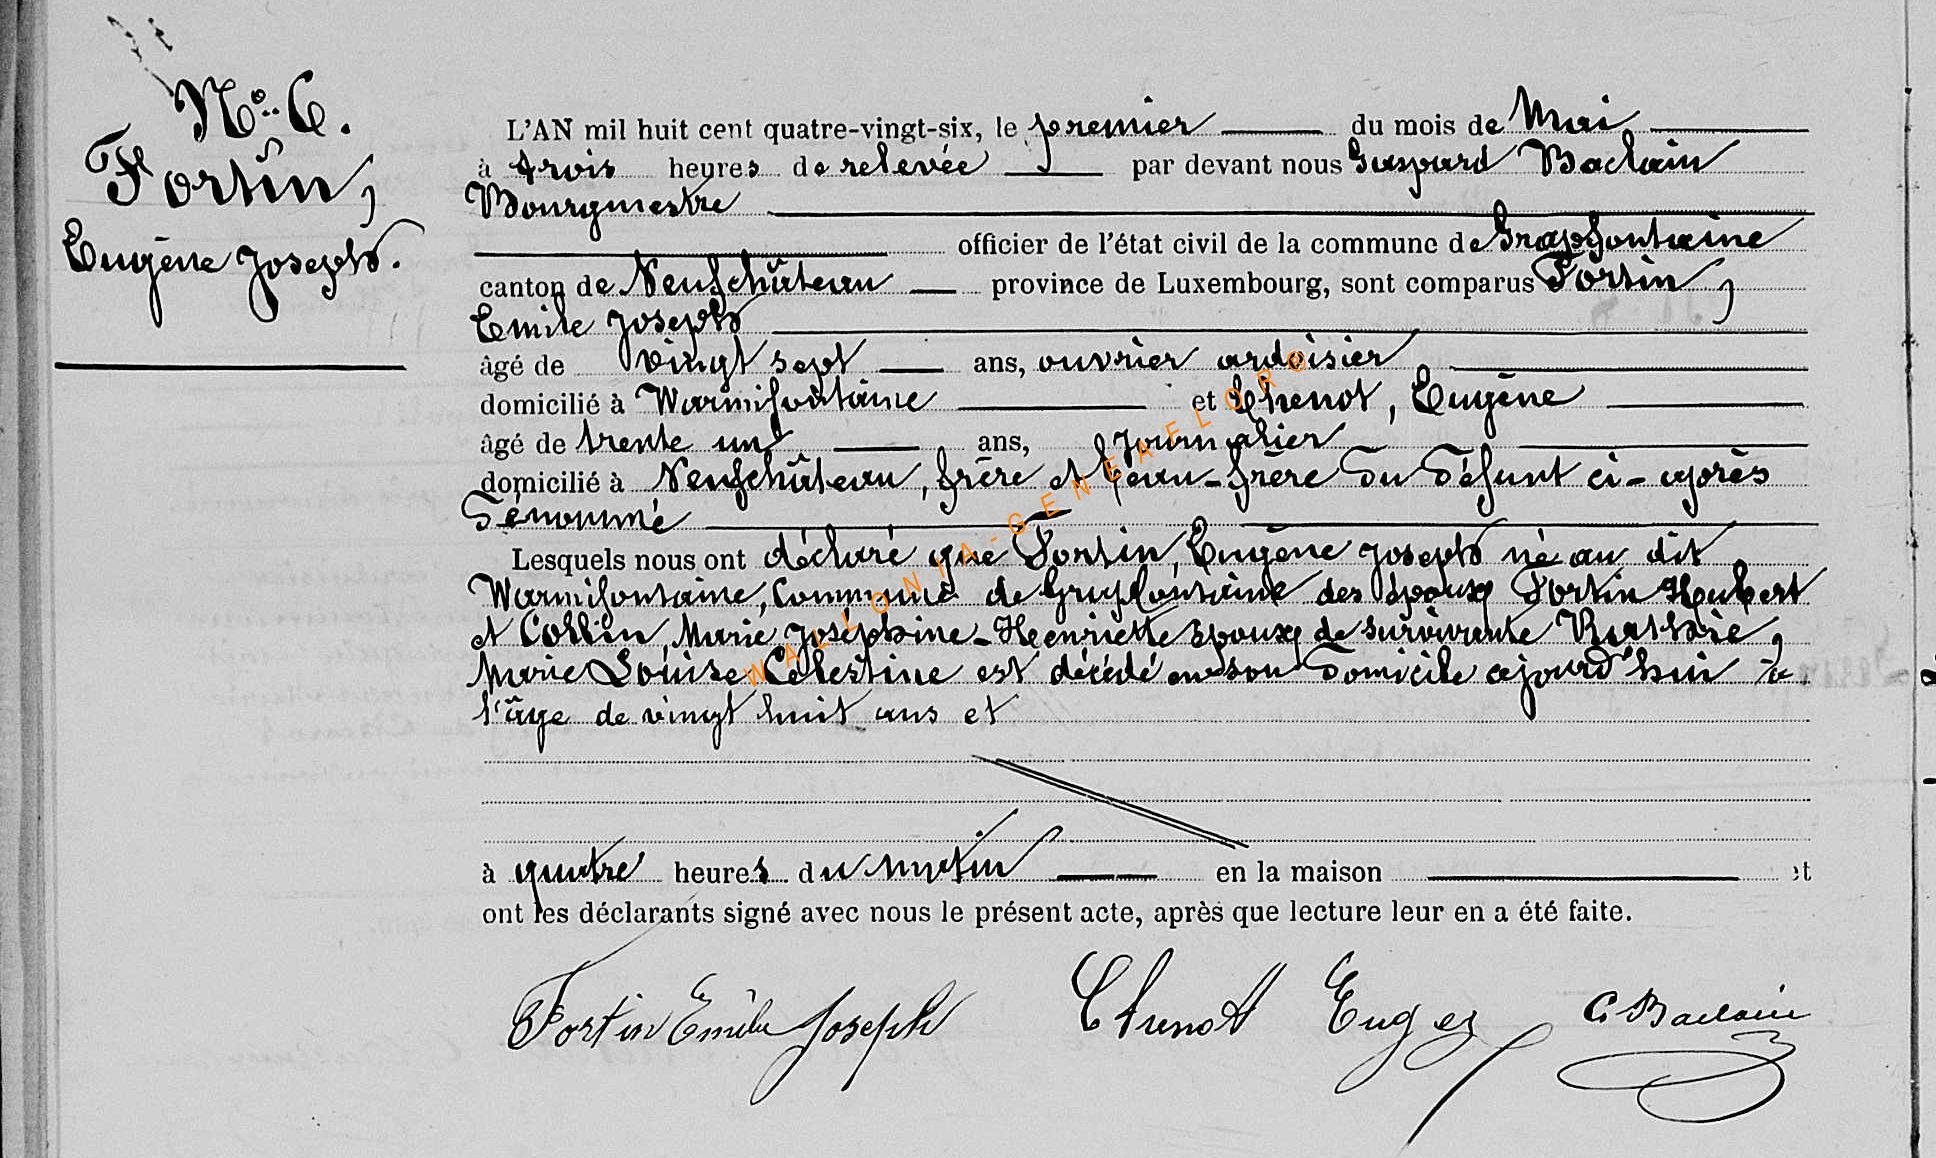 N° 6.
Fortin,
Eugène Joseph.
L'AN mil huit cent quatre-vingt-six, le premier du mois de Mai
à trois heures de relevée par devant nous Gaspard Baclain
Bourgmestre
officier de l'état civil de la commune de Grapfontaine
canton de Neufchâteau province de Luxembourg, sont comparus Fortin,
Emile Joseph
âgé de vingt sept ans, ouvrier ardoisier
domicilié à Warmifontaine et Thenot, Eugène
âgé de trente un ans, Journalier
domicilié à Neufchâteau, frère et beau-frère du défunt ci-après
dénommé
Lesquels nous ont déclaré que Fortin, Eugène Joseph né au dit
Warmifontaine, Commune de Grapfontaine des époux Fortin Hubert
et Collin, Marie Joséphine-Henriette époux de survivante
Marie Louise Célestine est décédé en son domicile ajourd'hui à
l'âge de vingt huit ans et
à quatre heures du matin en la maison et
ont les déclarants signé avec nous le présent acte, après que lecture leur en a été faite.
Fortin Emile Joseph Thenot Eugène G. Baclain
WALLONIA-GENEAFLORO